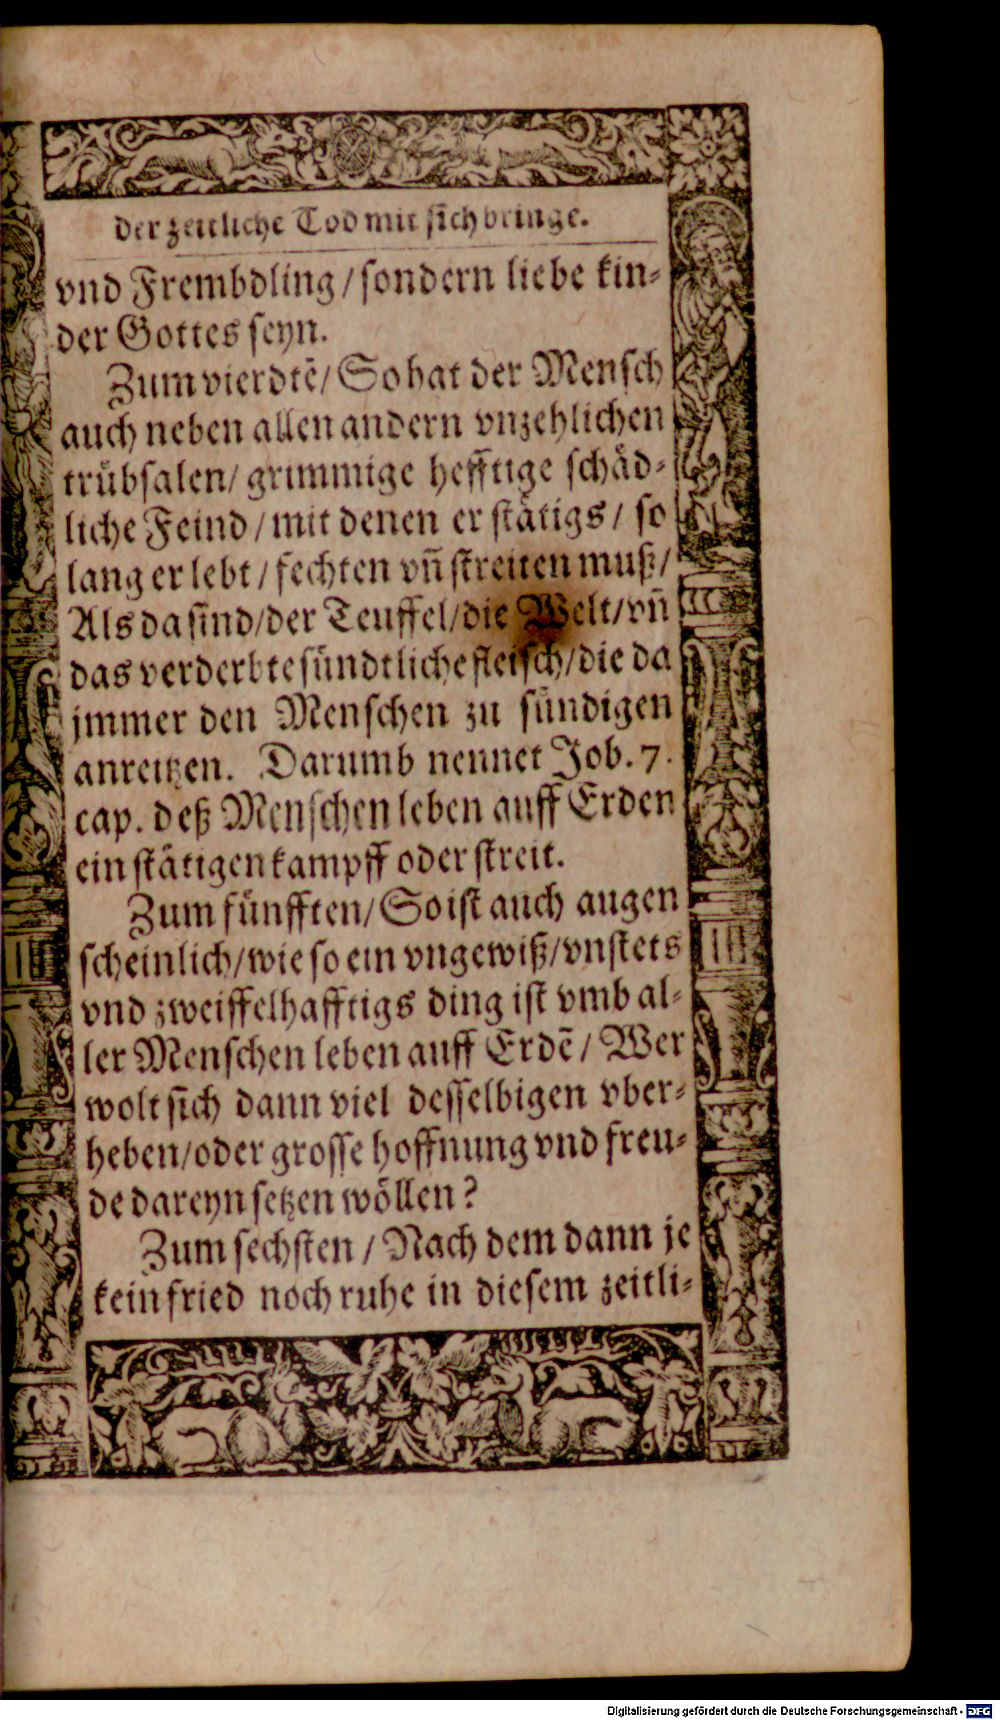 der zeitliche Tod mit sich bringe.
vnd Frembdling / sondern liebe kin-
der Gottes seyn.
Zum vierdtē / So hat der Mensch
auch neben allen andern vnzehlichen
trübsalen / grimmige hefftige schäd-
liche Feind / mit denen er stätigs / so
lang er lebt / fechten vñ streiten muß /
Als da sind / der Teuffel / die Welt / vñ
das verderbte sündtliche fleisch / die da
jmmer den Menschen zu sündigen
anreitzen. Darumb nennet Job. 7.
cap. deß Menschen leben auff Erden
ein stätigen kampff oder streit.
Zum fünfften / So ist auch augen
scheinlich / wie so ein vngewiß / vnstets
vnd zweiffelhafftigs ding ist vmb al-
ler Menschen leben auff Erdē / Wer
wolt sich dann viel desselbigen vber-
heben / oder grosse hoffnung vnd freu-
de dareyn setzen wöllen?
Zum sechsten / Nach dem dann je
kein fried noch ruhe in diesem zeitli-
Digitalisierung gefördert durch die Deutsche Forschungsgemeinschaft - DFG